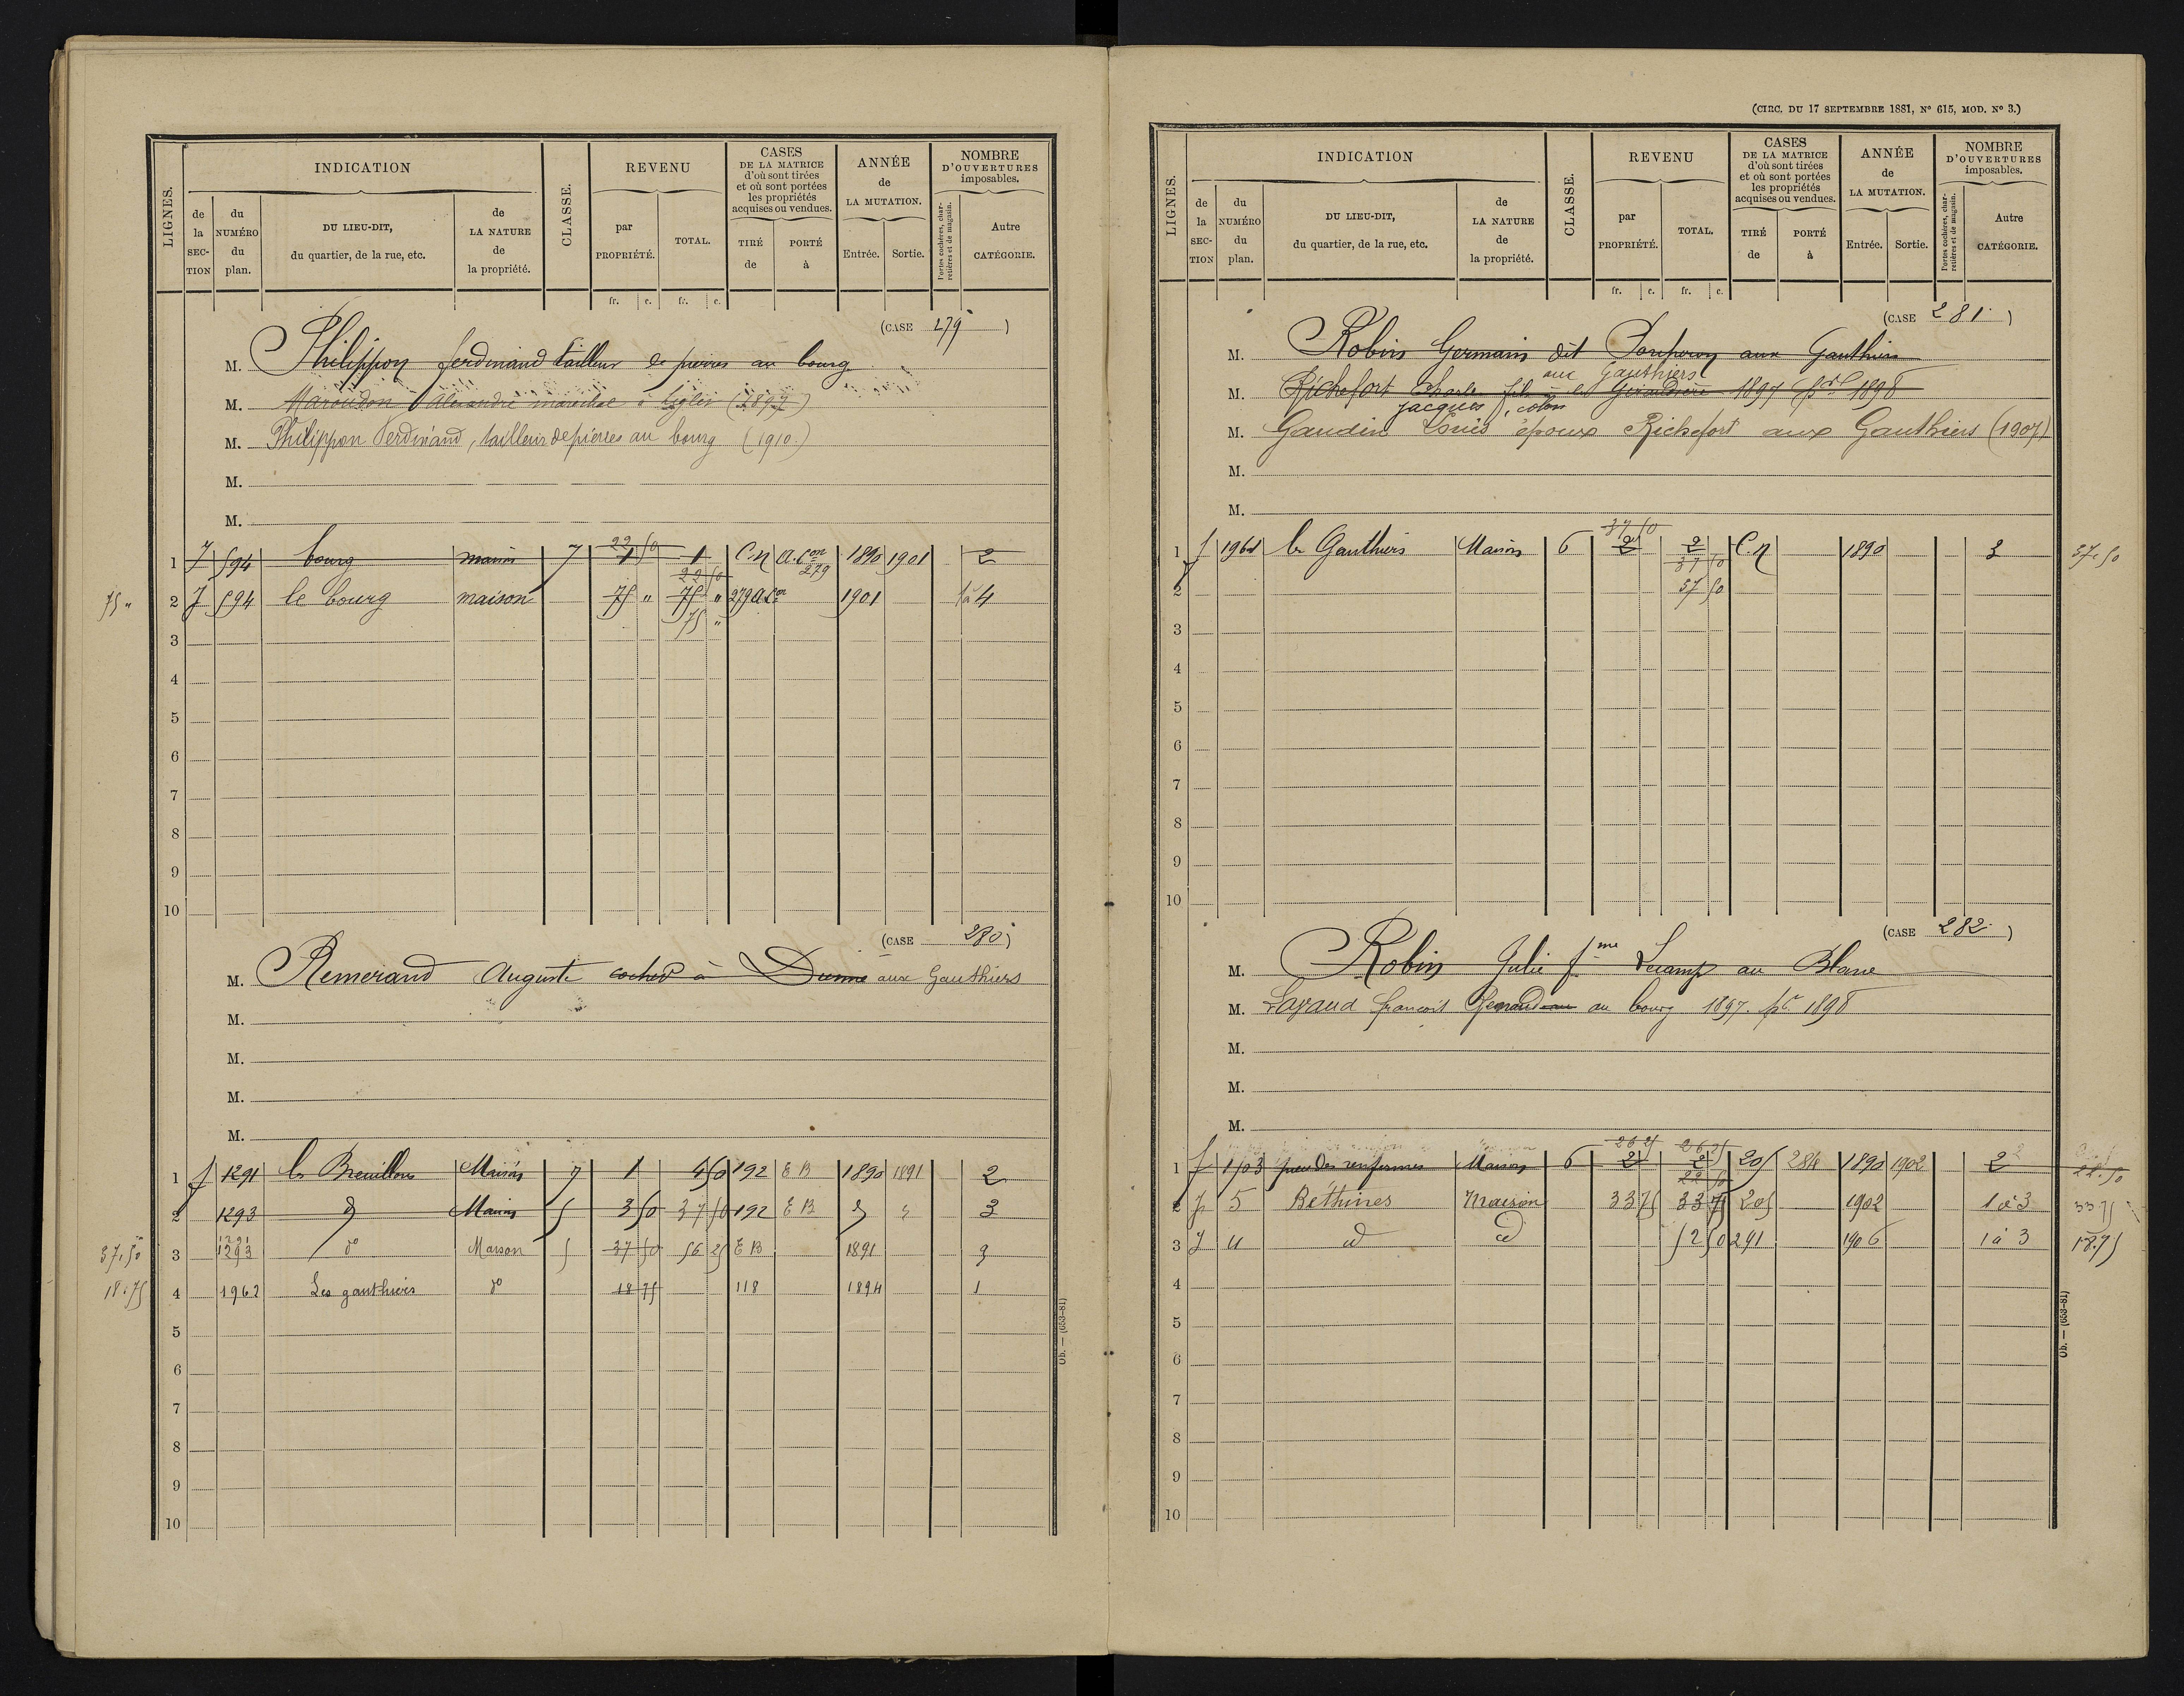 LIGNES.
INDICATION
de la SECTION
du NUMÉRO du plan.
DU LIEU-DIT, du quartier, de la rue, etc.
de LA NATURE de la propriété.
CLASSE.
REVENU
par PROPRIÉTÉ.
TOTAL.
CASES DE LA MATRICE d'où sont tirées et où sont portées les propriétés acquises ou vendues.
TIRÉ de
PORTÉ à
ANNÉE de LA MUTATION.
Entrée.
Sortie.
NOMBRE D'OUVERTURES imposables.
Portes cochères, charretières et de magasin.
Autre CATÉGORIE.
fr. c. fr. c.
(CASE 279)
M. Philippon ferdinand tailleur de pierres au bourg
M. Maroudon Alexandre maréchal à Liglet (1897)
M. Philippon Ferdinand, tailleur de pierres au bourg (1910.)
M.
M.
22 50
1 J 594 bourg maison 7 1 1 C.N a. Con 279 1890 1901 2
22 50
75 " 2 J 594 le bourg maison 75 " 75 " 279 a Con 1901 1 à 4
75 "
3
4
5
6
7
8
9
10
(CASE 280)
M. Remerand Auguste cocher à aux Gauthiers
M.
M.
M.
M.
1 J 1291 les Breuillons Maison 7 1 4 50 192 E B 1890 1891 2
2 1293 d Maison 5 3 50 37 50 192 E B d 3
1291
37.50 3 1293 do Maison 5 37 50 56 25 E B 1891 3
18.75 4 1962 Les gauthiers do 18 75 118 1894 1
5
6
7
8
9
10
Ob. — (653-81)
(CIRC. DU 17 SEPTEMBRE 1881, No 615, MOD. No 3.)
LIGNES.
INDICATION
de la SECTION
du NUMÉRO du plan.
DU LIEU-DIT, du quartier, de la rue, etc.
de LA NATURE de la propriété.
CLASSE.
REVENU
par PROPRIÉTÉ.
TOTAL.
CASES DE LA MATRICE d'où sont tirées et où sont portées les propriétés acquises ou vendues.
TIRÉ de
PORTÉ à
ANNÉE de LA MUTATION.
Entrée.
Sortie.
NOMBRE D'OUVERTURES imposables.
Portes cochères, charretières et de magasin.
Autre CATÉGORIE.
fr. c. fr. c.
(CASE 281)
M. Robin Germain dit aux Gauthiers
aux Gauthiers
M. Richefort Charles fils à la 1897 pr 1898
jacques, colon
M. Gaudin Louis époux Richefort aux Gauthiers (1907)
M.
M.
37 50
1 J 1961 les Gauthiers Maison 6 2 2 C.N 1890 3 37.50
37 50
2 37 50
3
4
5
6
7
8
9
10
(CASE 282)
M. Robin Julie fme au Blanc
M. françois au bourg 1897. pr 1898
M.
M.
M.
26 25 26 25
1 J 1503 Maison 6 2 2 205 284 1890 1902 2 22.50
22 50
2 J 5 Béthines maison 33 75 33 75 205 1902 1 à 3 33 75
3 J 4 d d 52 50 291 1906 1 à 3 18.75
4
5
6
7
8
9
10
Ob. — (653-81)